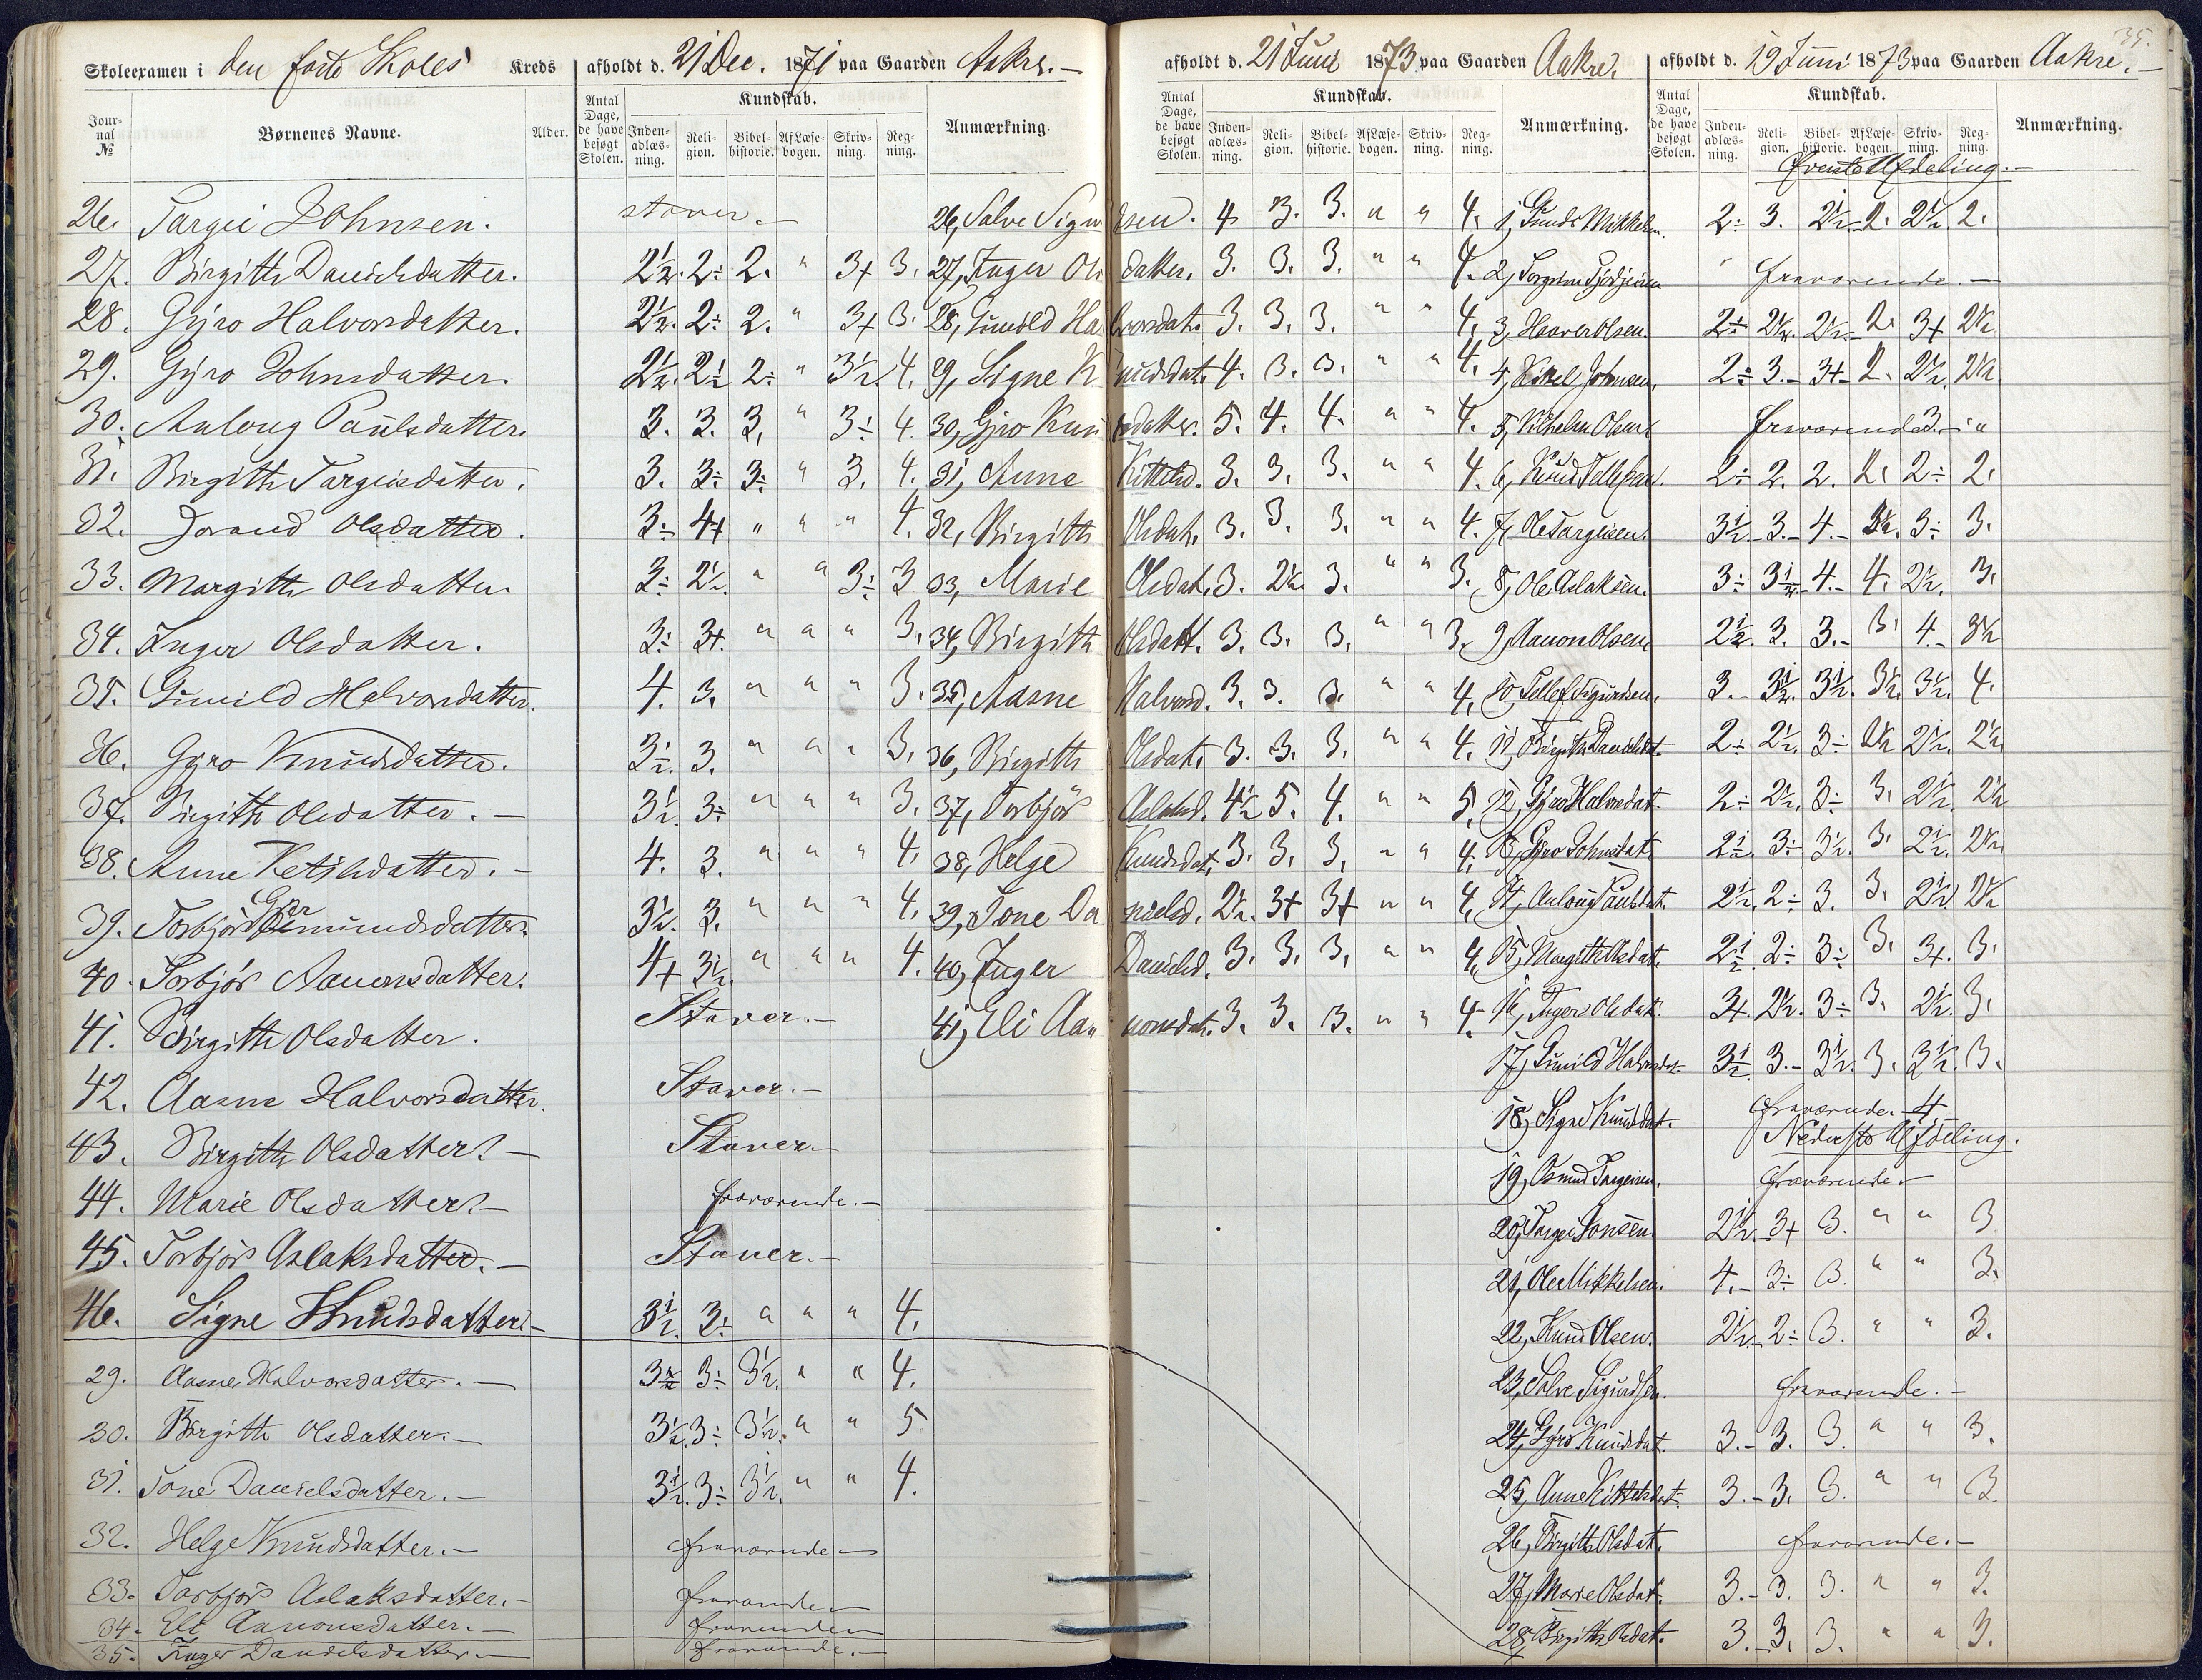 35.
Skoleexamen i den første Skoles Kreds afholdt d. 21 Dec. 1871 paa Gaarden Aakre. —
Journal № Børnenes Navne. Alder. Antal Dage, de have besøgt Skolen. Kundskab. Indenadlæsning. Religion. Bibelhistorie. Af Læsebogen. Skrivning. Regning. Anmærkning.
26. Targei Johnsen. staver. —
27. Birgith Danielsdatter. 2½. 2÷ 2. " 3+ 3.
28. Gyro Halvorsdatter. 2½. 2÷ 2. " 3+ 3.
29. Gyro Johnsdatter. 2½. 2½ 2÷ " 3½. 4.
30. Anlaug Paulsdatter. 3. 3. 3. " 3÷ 4.
31. Birgith Targeisdatter. 3. 3÷ 3÷ " 3. 4.
32. Jorand Olsdatter. 3÷ 4+ " " " 4.
33. Margith Olsdatter. 3÷ 2½. " " 3÷ 3
34. Inger Olsdatter. 3÷ 3+. " " " 3.
35. Gunild Halvorsdatter. 4. 3. " " " 3.
36. Gyro Knudsdatter. 3½. 3. " " " 3.
37. Birgith Olsdatter. — 3½. 3÷ " " " 3.
38. Anne Ketilsdatter. — 4. 3. " " " 4.
39. Torbjør Germundsdatter. 3½. 3. " " " 4.
40. Torbjør Aanonsdatter. 4+ 3½. " " " 4.
41. Birgith Olsdatter. Staver. —
42. Aasne Halvorsdatter. Staver. —
43. Birgith Olsdatter. — Staver. —
44. Marie Olsdatter. — fraværende. —
45. Torbjør Aslaksdatter. — Staver. —
46. Signe Knudsdatter. — 3½. 3÷ " " " 4.
29. Aasne Halvorsdatter. — 3½ 3÷ 3½. " " 4.
30. Birgith Olsdatter. — 3½. 3÷ 3½. " " 5
31. Tone Danielsdatter. — 3½. 3÷ 3½. " " 4.
32. Helge Knudsdatter. — fraværende —
33. Torbjør Aslaksdatter. — fraværende —
34. Eli Aanonsdatter. — fraværende —
35. Inger Danielsdatter — fraværende. —
afholdt d. 21 Juni 1873 paa Gaarden Aakre.
Antal Dage, de have besøgt Skolen. Kundskab. Indenadlæsning. Religion. Bibelhistorie. Af Læsebogen. Skrivning. Regning. Anmærkning.
26, Salve Sigurdsen. 4 3. 3. " " 4.
27, Inger Olsdatter. 3. 3. 3. " " 4.
28, Gunild Halvorsdat. 3. 3. 3. " " 4.
29, Signe Knudsdat. 4. 3. 3. " " 4.
30, Gyro Knudsdatter. 5. 4. 4. " " 4.
31, Anne Kittilsd. 3. 3. 3. " " 4.
32, Birgith Olsdat. 3. 3. 3. " " 4.
33, Marie Olsdat. 3. 2½. 3. " " 3.
34, Birgith Olsdatt. 3. 3. 3. " " 3.
35, Aasne Halvord. 3. 3. 3. " " 4.
36, Birgith Olsdat. 3. 3. 3. " " 4.
37, Torbjør Aslaksd. 4½ 5. 4. " " 5.
38, Helge Knudsdat. 3. 3. 3. " " 4.
39, Tone Danielsd. 2½. 3+ 3+ " " 4.
40, Inger Danielsd. 3. 3. 3. " " 4.
41, Eli Aanonsdat. 3. 3. 3. " " 4.
afholdt d. 19 Juni 1873 paa Gaarden Aakre. —
Antal Dage, de have besøgt Skolen. Kundskab. Indenadlæsning. Religion. Bibelhistorie. Af Læsebogen. Skrivning. Regning. Anmærkning.
Øverste Afdeling. —
1, Gunde Mikkelsen. 2÷ 3. 2½ 2. 2½. 2.
2, Torgrim fraværende. —
3, Haaver Olsen. 2÷ 2½. 2½ 2. 3+ 2½
4, Kittel Johnsen. 2÷ 3. 3+ 2. 2½. 2½.
5, Vilhelm Olsen. fraværende 3.
6, Knud Tellefsen. 2÷ 2. 2. 2. 2÷ 2.
7, Ole Targeisen. 3½ 3. 4. 3½. 3÷ 3.
8, Ole Aslaksen. 3÷ 3½ 4. 4. 2½. 3.
9, Aanon Olsen 2½. 3. 3. 3. 4. 3½
10, Tellef Sigurdsen. 3. 3½. 3½. 3½. 3½. 4.
11, Birgith Danielsdat. 2÷ 2½. 3÷ 2½ 2½. 2½.
12, Gyro Halvorsdat. 2÷ 2½. 3÷ 3. 2½. 2½
13, Gyro Johnsdat. 2½. 3÷ 3½. 3. 2½. 2½.
14, Anlaug Paulsdat. 2½. 2÷ 3. 3. 2½. 2½
15, Margith Olsdat. 2½ 2÷ 3÷ 3. 3+. 3.
16, Inger Olsdat. 3+. 2½. 3÷ 3. 2½. 3.
17, Gunild Halvorsdat. 3½ 3. 3½. 3. 3½. 3.
18, Signe Knudsdat. fraværende. 4
Nederste Afdeling.
19, Osmund Targeisen. fraværende —
20, Targei Jonsen 2½. 3+ 3. " " 3
21, Ole Mikkelsen. 4. 3÷ 3. " " 3.
22, Knud Olsen. 2½. 2÷ 3. " " 3.
23, Salve Sigurdsen. fraværende. —
24, Gyro Knudsdat. 3. 3. 3. " " 3.
25, Anne Kittelsdat. 3. 3. 3. " " 3.
26, Birgith Olsdat. fraværende. —
27, Marie Olsdat. 3. 3. 3. " " 3.
28, Birgith Olsdat. 3. 3. 3. " " 3.